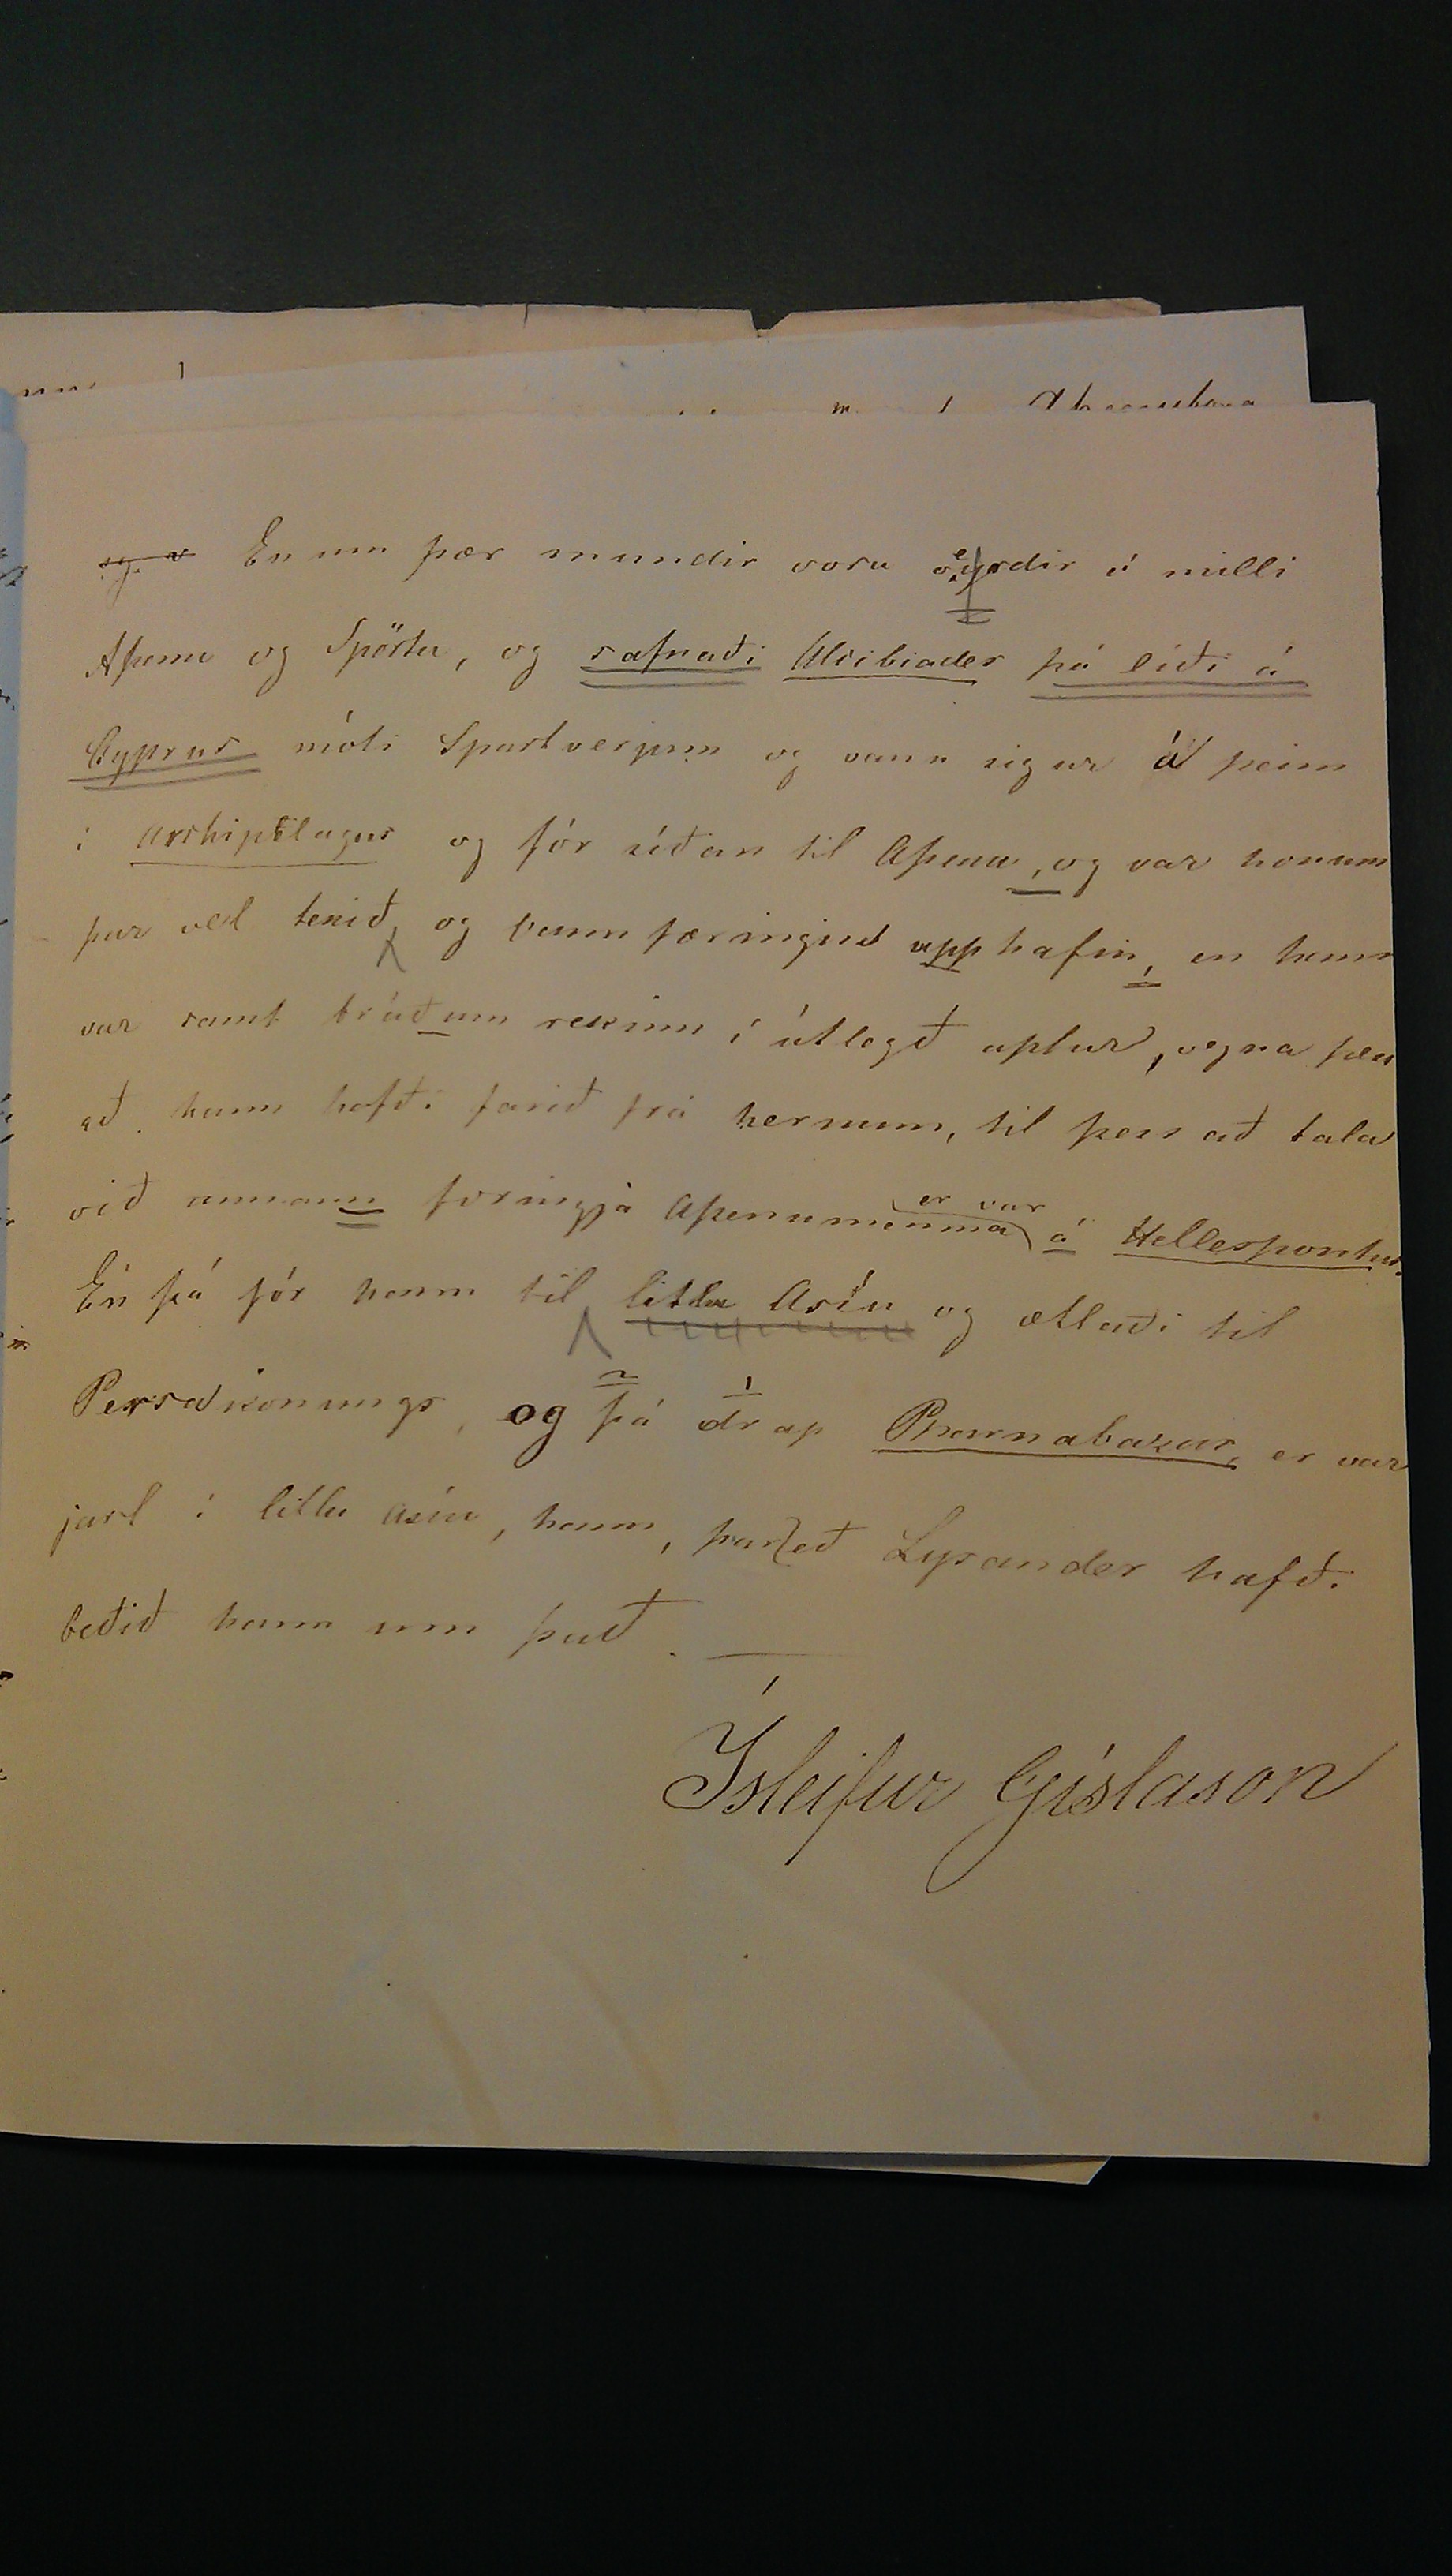 En um þær mundir voru oeyrdir á milli
Aþenu og Spörtu, og safnaði Alcibiades þá liði á
Cyprus móti Spartverjum og vann sigur á þeim
í Archipelagus og fór síðan til Aþenu, og var honum
þar vel tekið, og bannfæringin upphafin, en hann
var samt bráðum rekinn í útlegð aptur, vegna þess
að hann hafði farið frá hernum, til þess að tala
við annann foringja Aþenumanna er var á Hellespontus.
En þá fór hann til litlu Asíu og ætlaði til
Persakonungs, og 2 þá 1 drap Pharnabazus, er var
jarl í litlu Asíu, hann, þareð Lysander hafði
beðið hann um það. —
Ísleifur Gíslason